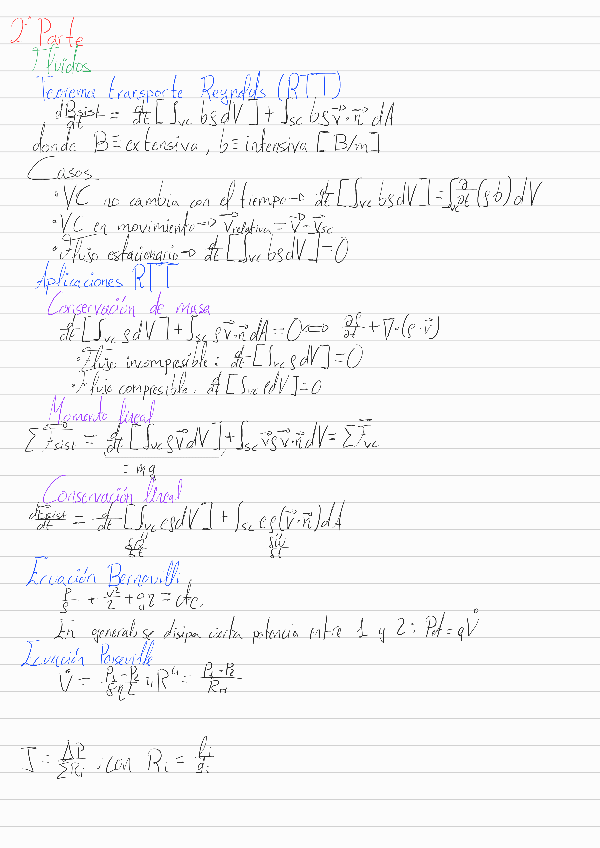 2ª Parte
Fluidos
Teorema transporte Reynolds (RTT)
dBsist/dt = d/dt [∫vc bρdV] + ∫sc bρv⃗·n⃗ dA
donde B≡extensiva, b≡intensiva [B/m]
Casos
·VC no cambia con el tiempo→ d/dt [∫vc bρdV] = ∫vc ∂/∂t (ρb) dV
·VC en movimiento→ v⃗relativa = v⃗-v⃗sc
·Flujo estacionario→ d/dt [∫vc bρdV] = 0
Aplicaciones RTT
Conservación de masa
d/dt [∫vc ρdV] + ∫sc ρv⃗·n⃗ dA = 0 ⇔ ∂ρ/∂t + ∇·(ρ·v⃗)
·Flujo incompresible: d/dt [∫vc ρdV] = 0
·Flujo compresible: d/dt [∫vc ρdV] = 0
Momento lineal
∑F⃗sist = d/dt [∫vc ρv⃗dV] + ∫sc v⃗ρv⃗·n⃗ dV = ∑F⃗vc
= mg
Conservación lineal
dEsist/dt = d/dt [∫vc eρdV] + ∫sc eρ(v⃗·n⃗)dA
Ecuación Bernoulli
P/ρ + v²/2 + gz = cte.
En general, se disipa cierta potencia entre 1 y 2: Pot = qV̇
Ecuación Poiseuille
V̇ = P₁-P₂/8ηL π R⁴ = P₁-P₂/RH
I = ΔP/∑Ri , con Ri = li/σi